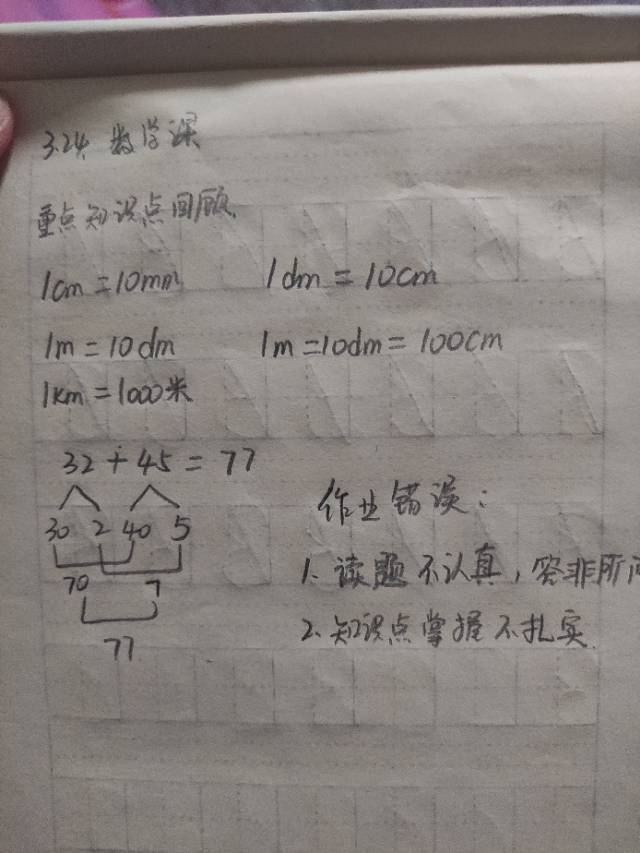 3.24. 数学课
重点知识点回顾.
1cm=10mm 1dm=10cm
1m=10dm 1m=10dm=100cm
1km=1000米
32+45=77
30 2 40 5
70 7
77
作业错误:
1. 读题不认真,答非所问
2. 知识点掌握不扎实.